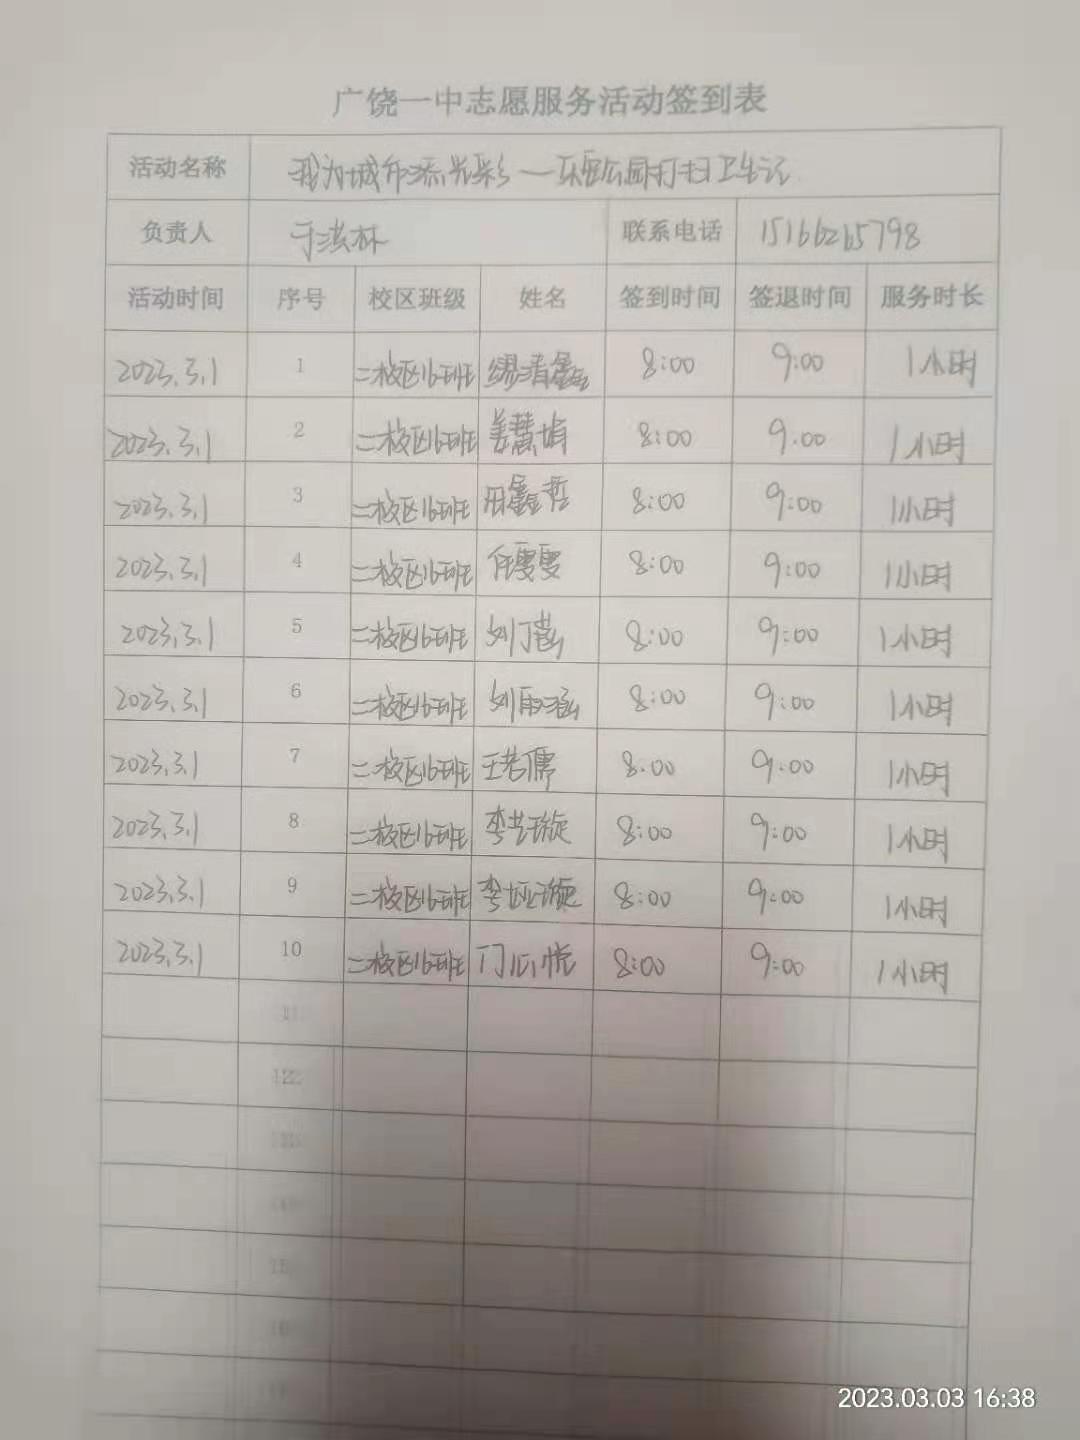 广饶一中志愿服务活动签到表
活动名称 我为城市添光彩——乐园公园打扫卫生记
负责人 于洪林 联系电话 15166265798
活动时间 序号 校区班级 姓名 签到时间 签退时间 服务时长
2023.3.1 1 二校区16班 缪清鑫 8:00 9:00 1小时
2023.3.1 2 二校区16班 姜慧娟 8:00 9:00 1小时
2023.3.1 3 二校区16班 田鑫哲 8:00 9:00 1小时
2023.3.1 4 二校区16班 任雯雯 8:00 9:00 1小时
2023.3.1 5 二校区16班 刘丁菡 8:00 9:00 1小时
2023.3.1 6 二校区16班 刘雨涵 8:00 9:00 1小时
2023.3.1 7 二校区16班 王若儒 8:00 9:00 1小时
2023.3.1 8 二校区16班 李艺璇 8:00 9:00 1小时
2023.3.1 9 二校区16班 李娅璇 8:00 9:00 1小时
2023.3.1 10 二校区16班 门心悦 8:00 9:00 1小时
11
12
13
14
15
16
2023.03.03 16:38